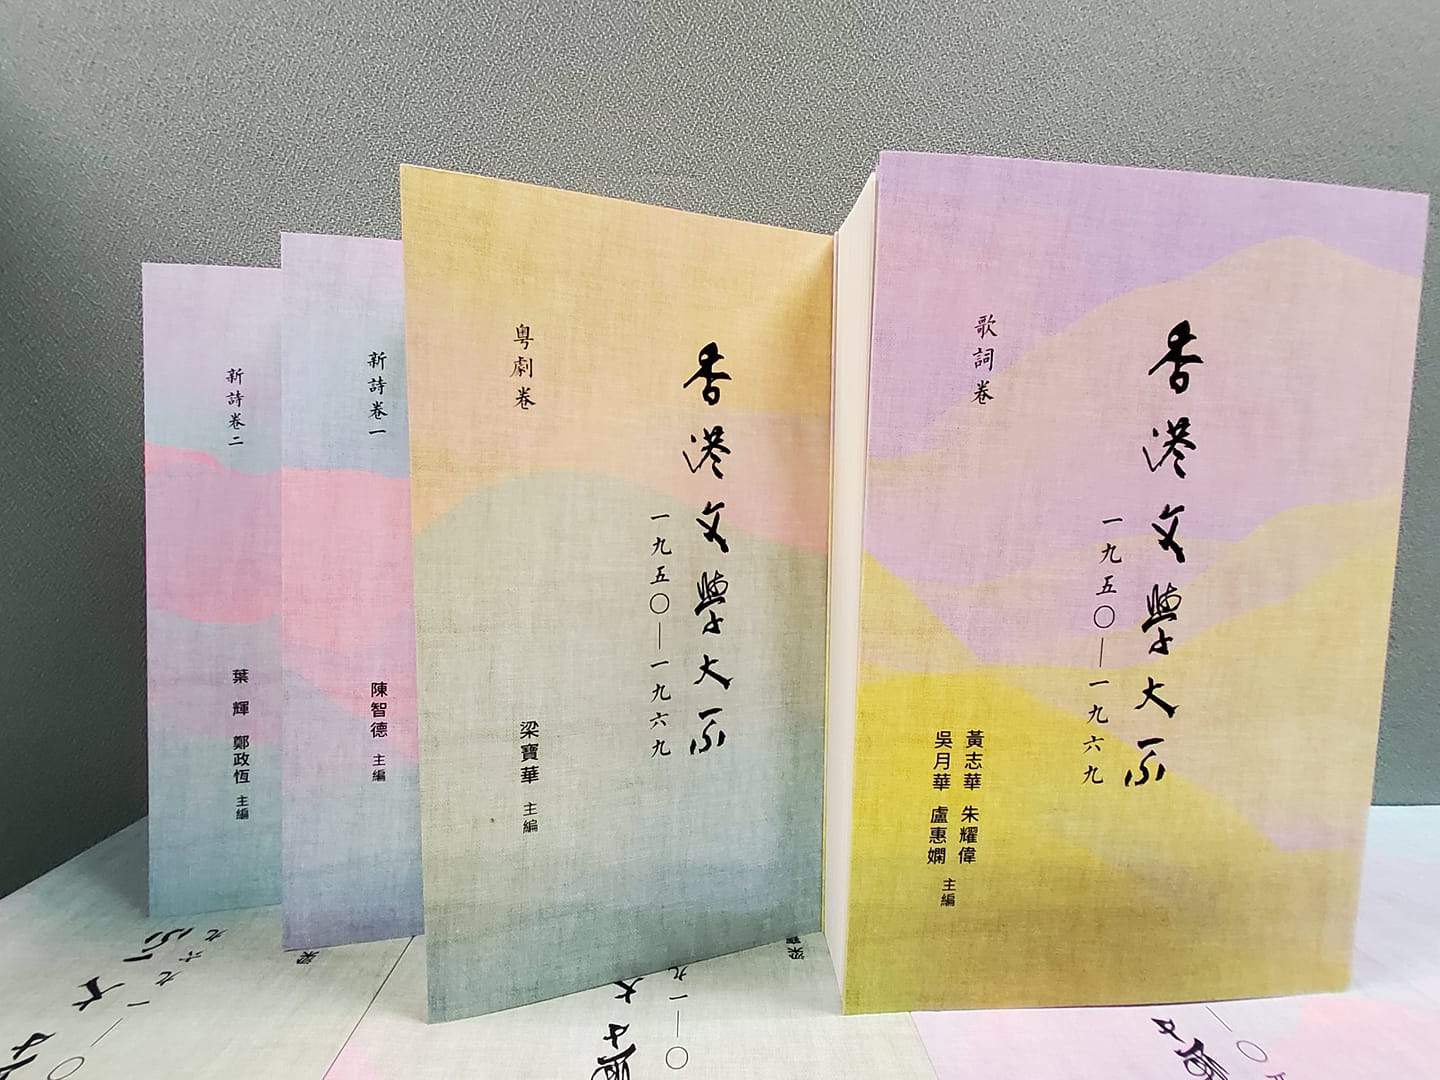 新詩卷二
葉輝 鄭政恆 主編
新詩卷一
陳智德 主編
粵劇卷
香港文學大系
一九五〇—一九六九
梁寶華 主編
歌詞卷
香港文學大系
一九五〇—一九六九
黃志華 朱耀偉
吳月華 盧惠嫻
主編
大系
一九六九
〇—一
梁
梁寶
〇—一九